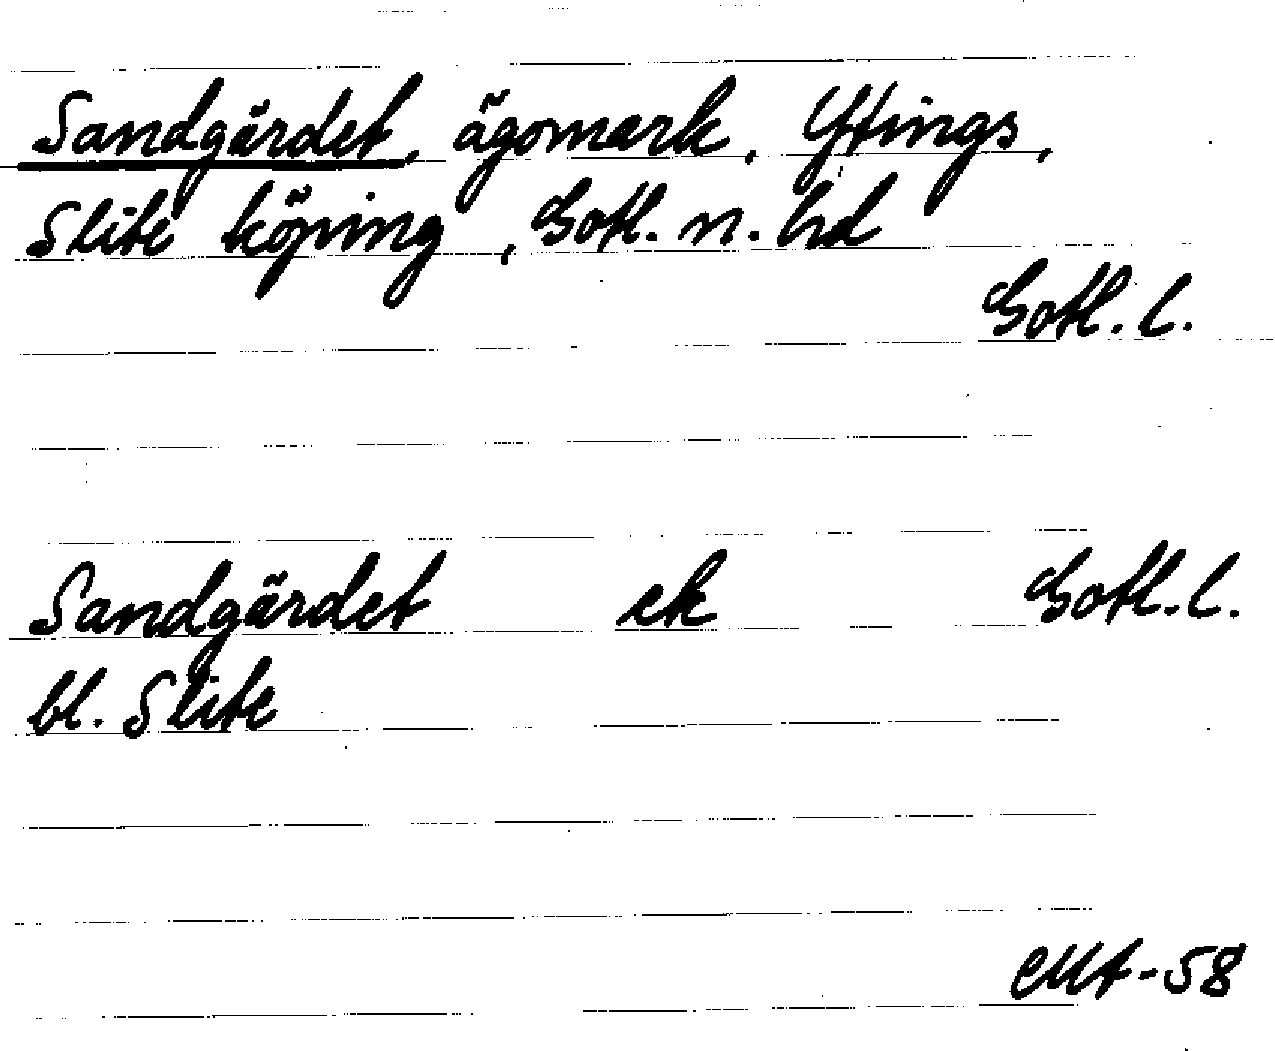 Sandgärdet, ägomark, Yttings,
Slite köping, Gotl. n. hd
Gotl. l.
Sandgärdet ek Gotl. l.
bl. Slite
-58